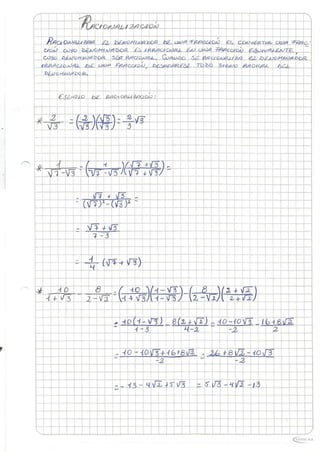 RACIONALIZACIÓN
RACIONALIZAR EL DENOMINADOR DE UNA FRACCIÓN EL CONVERTIR UNA FRAC-
CIÓN CUYO DENOMINADOR ES IRRACIONAL EN UNA FRACCIÓN EQUIVALENTE,
CUYO DENOMINADOR SEA RACIONAL. CUANDO SE RACIONALIZA EL DENOMINADOR
IRRACIONAL DE UNA FRACCIÓN, DESAPARECE TODO SIGNO RADICAL DEL
DENOMINADOR.
EJEMPLO DE RACIONALIZACIÓN:
* 2/√3 = (2/√3)(√3/√3) = 2/3 √3
* 1/(√7-√3) = (1/(√7-√3))((√7+√3)/(√7+√3)) =
= (√7+√3)/((√7)²-(√3)²) =
= (√7+√3)/(7-3)
= 1/4 (√7+√3)
* 10/(1+√3) - 8/(2-√2) = (10/(1+√3))((1-√3)/(1-√3)) (8/(2-√2))((2+√2)/(2+√2))
= 10(1-√3)/(1-3) - 8(2+√2)/(4-2) = (10-10√3)/(-2) - (16+8√2)/2
= (10-10√3+16+8√2)/(-2) = (26+8√2-10√3)/(-2)
= -13-4√2+5√3 = 5√3-4√2-13